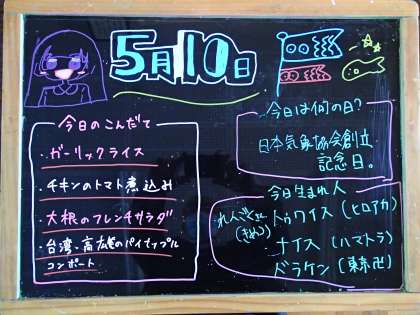 5月10日
今日のこんだて
・ガーリックライス
・チキンのトマト煮込み
・大根のフレンチサラダ
・台湾、高雄のパイナップル
コンポート
今日は何の日?
日本気象協会創立
記念日。
今日生まれ人
れんごく
(きめつ)
トゥワイス(ヒロアカ)
ナイス(ハマトラ)
ドラケン(東京卍)